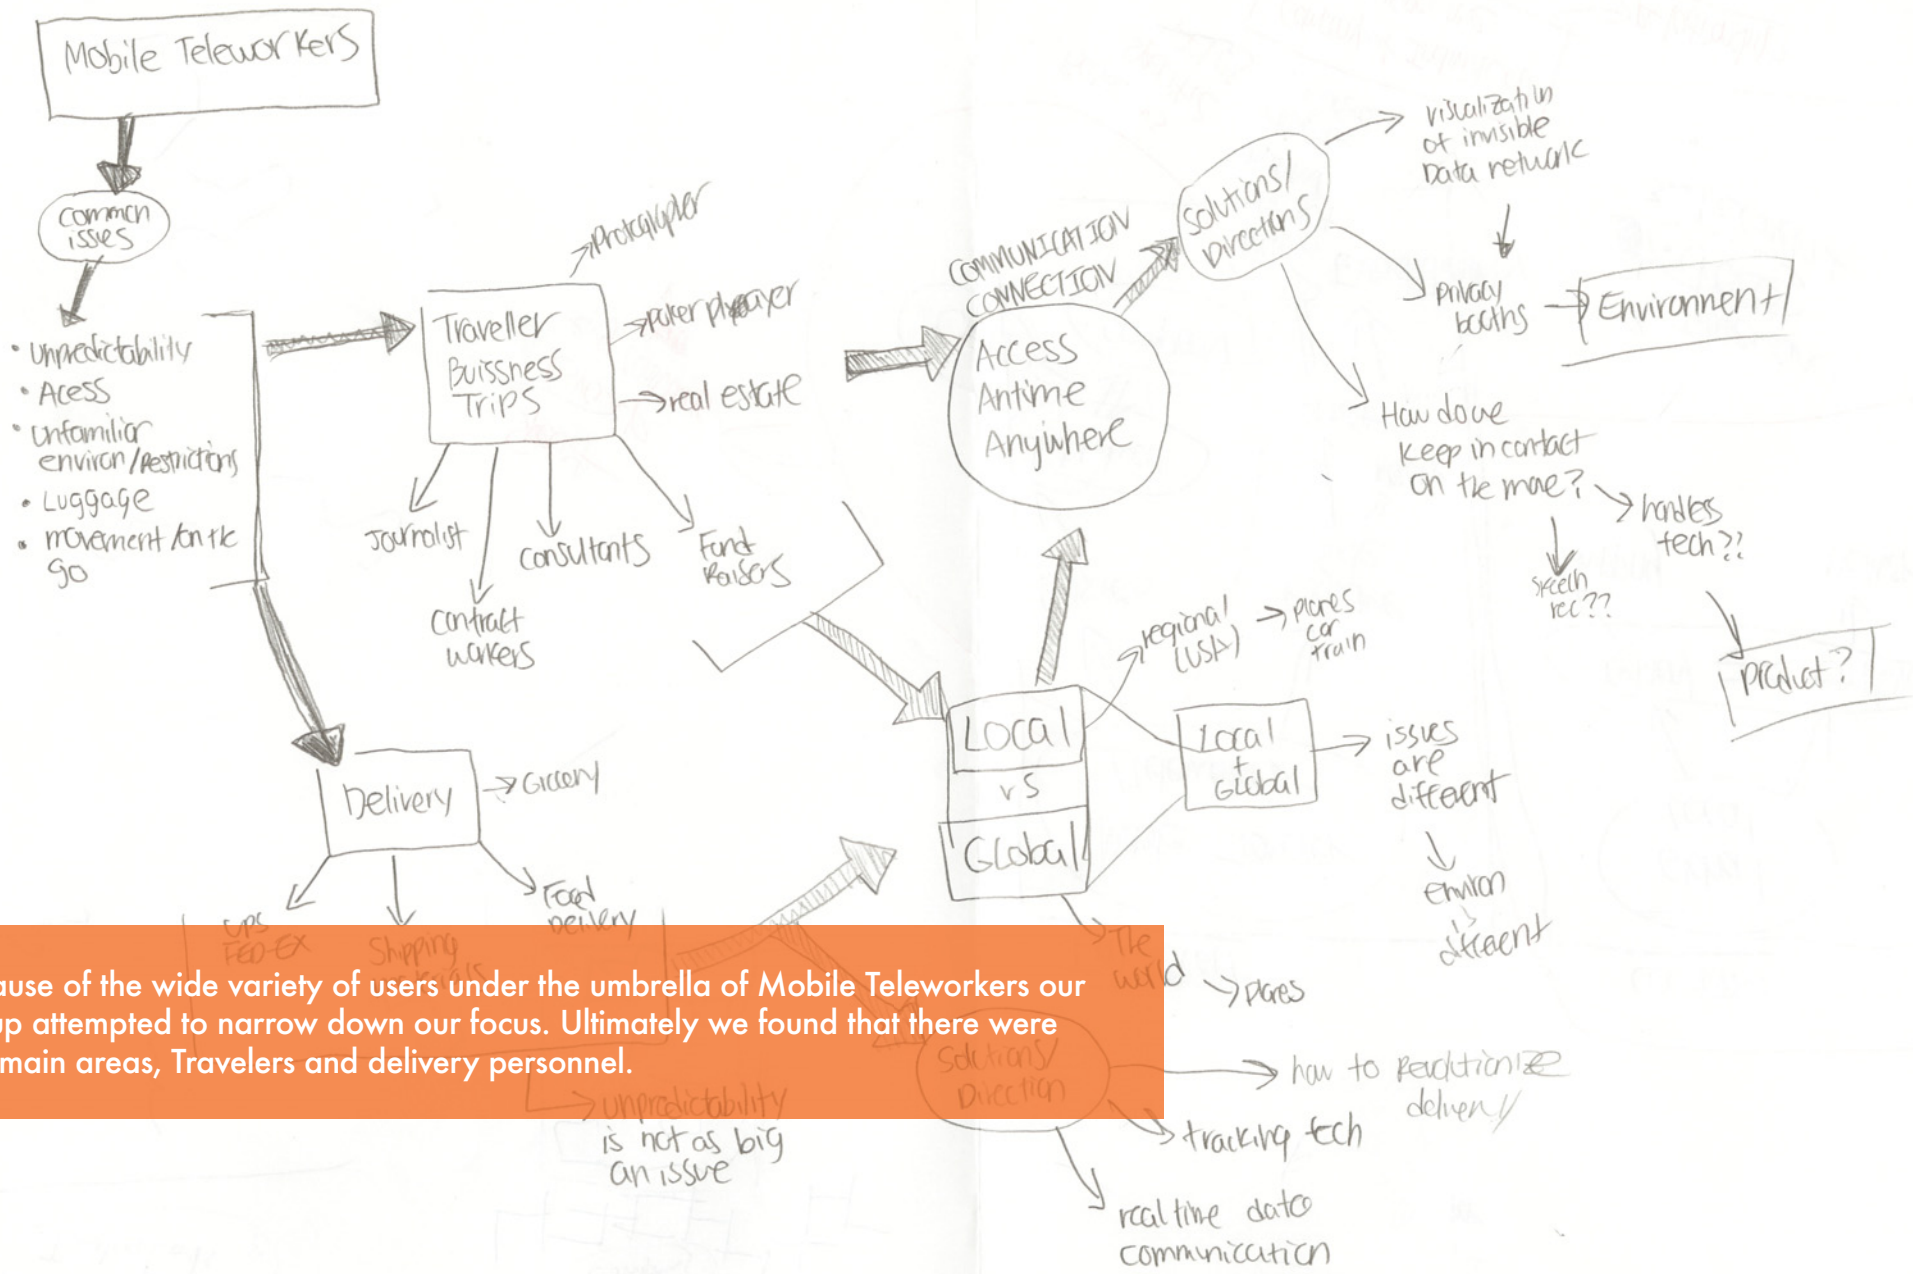 Mobile Teleworkers
common
issves
• unpredictability
• Acess
• unfamiliar
environ/Restrictions
• Luggage
• movement/on the
go
Traveller
Buissness
Trips
real estate
Journalist
contract
workers
consultants
Fund
Raisers
Delivery
UPS
FED-EX
Shipping
Food
Delivery
unpredictability
is not as big
an issue
COMMUNICATION
CONNECTION
Access
Antime
Anywhere
Solutions/
Directions
of invisible
Data network
privacy
booths
Environment
How do we
keep in contact
on the move?
tech??
speech
rec??
product?
LOCAL
vs
GLobal
regional
(USA)
planes
car
train
Local
+
Global
issues
are
different
environ
is
different
The
world
planes
Solutions/
Direction
how to
delivery
tracking tech
real time data
communication
ause of the wide variety of users under the umbrella of Mobile Teleworkers our
up attempted to narrow down our focus. Ultimately we found that there were
main areas, Travelers and delivery personnel.